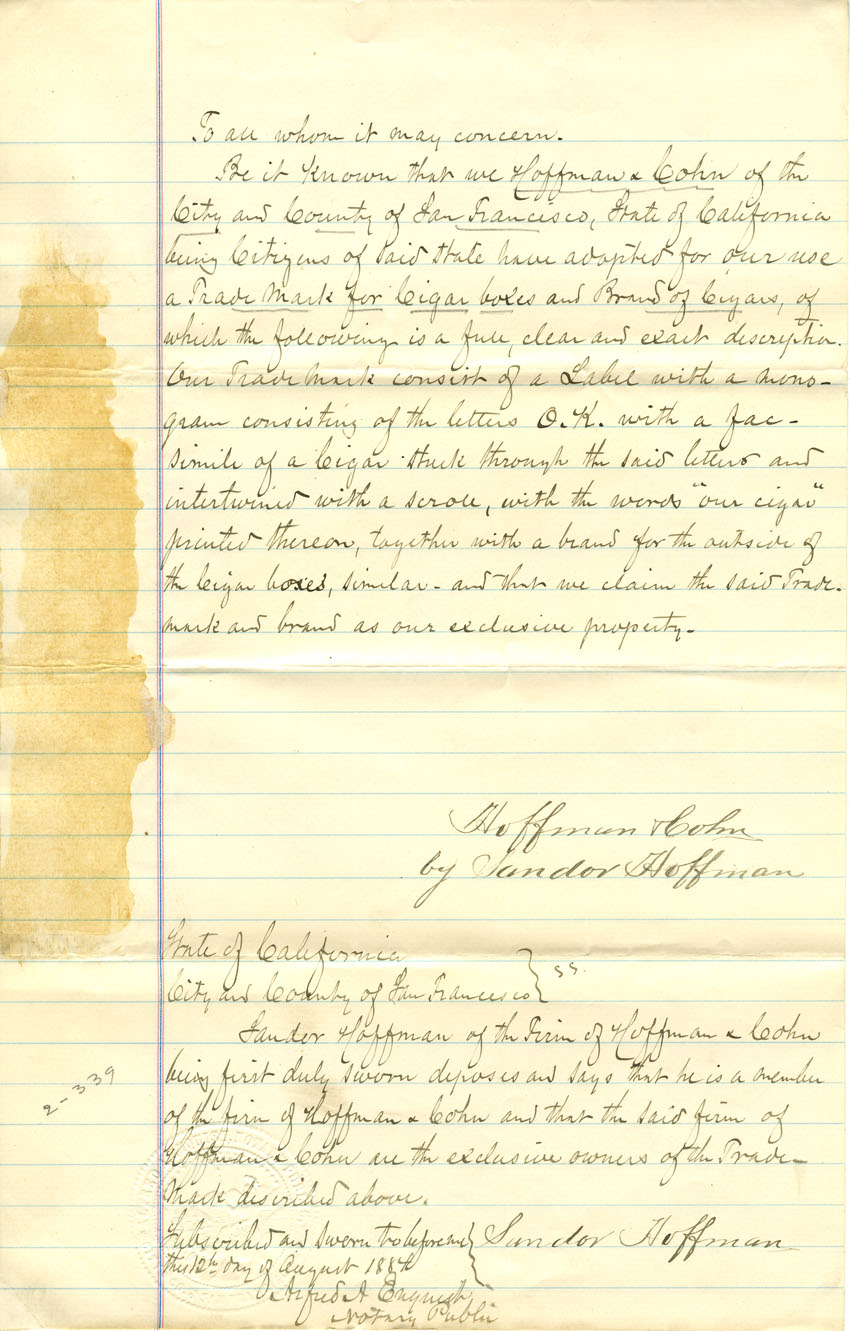 To all whom it may concern.
Be it Known that we Hoffman & Cohn of the
City and County of San Francisco, State of California
being Citizens of said State have adopted for our use
a Trade Mark for Cigar boxes and Brand of Cigars, of
which the following is a full, clear and exact description.
Our Trade Mark consist of a Label with a mono-
gram consisting of the letters O.K. with a fac-
simile of a Cigar stuck through the said letters and
intertwined with a scroll, with the words "our cigar"
printed thereon, together with a brand for the outside of
the Cigar boxes, similar - and that we claim the said Trade-
mark and brand as our exclusive property-
Hoffman & Cohn
by Sandor Hoffman
State of California
City and County of San Francisco } ss.
Sandor Hoffman of the Firm of Hoffman & Cohn
being first duly sworn deposes and says that he is a member
of the firm of Hoffman & Cohn and that the said firm of
Hoffman & Cohn are the exclusive owners of the Trade-
Mark discribed above.
2-339
Subscribed and sworn to before me } Sandor Hoffman
this 12th day of August 188
Alfred A Enquish
Notary Public